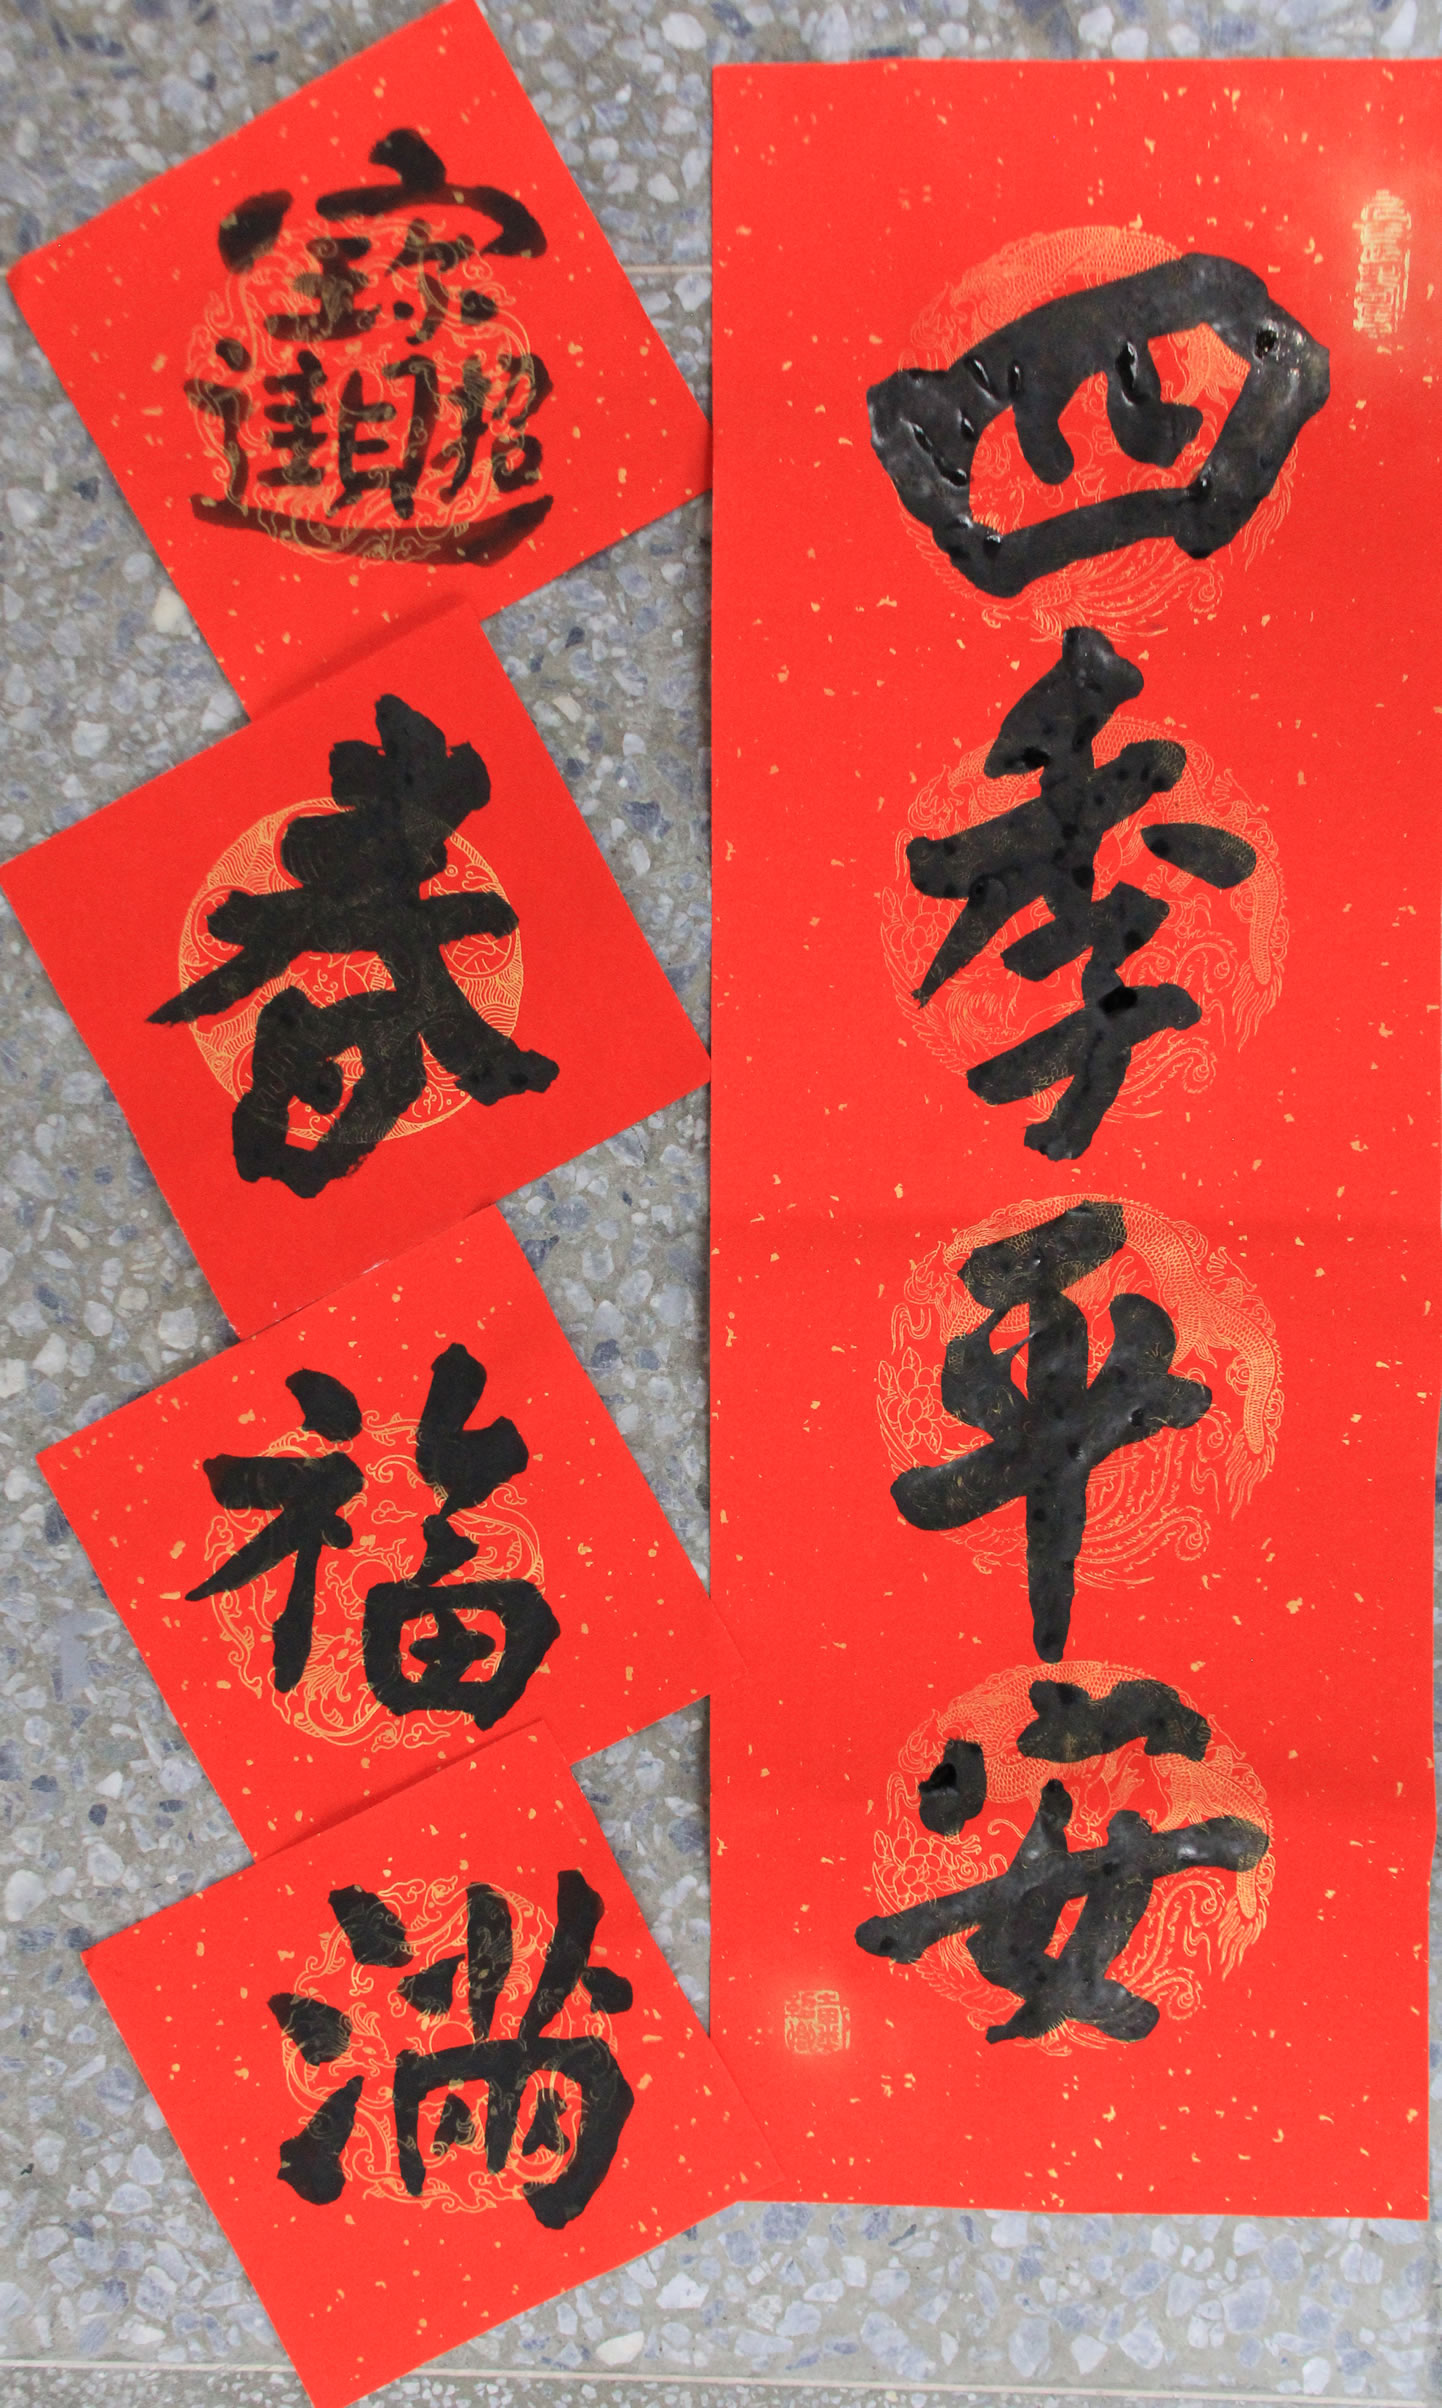 四季平安
招財進寶
春
福
滿